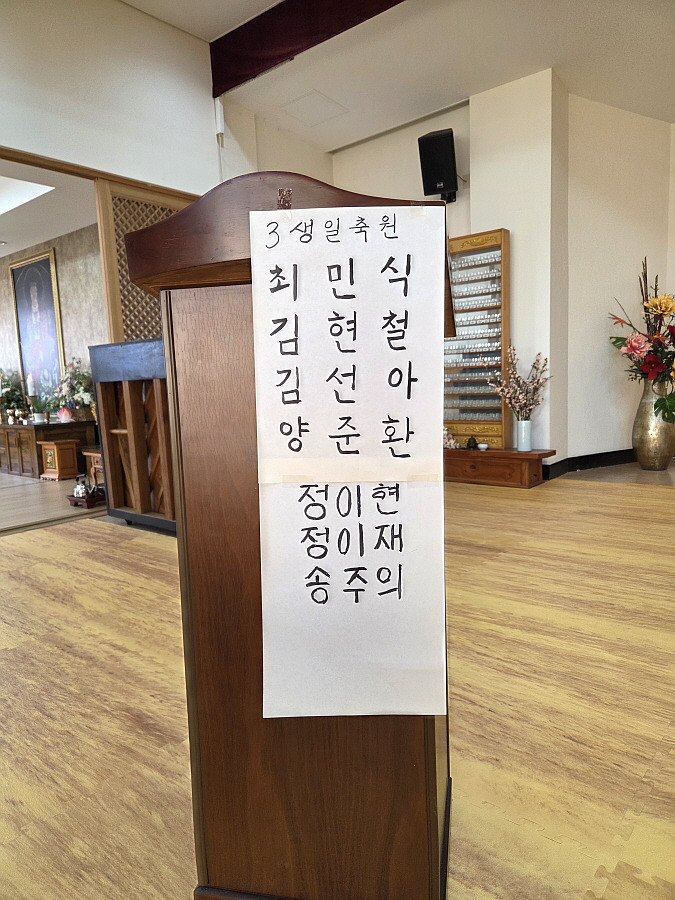 3생일축원
최 민 식
김 현 철
김 선 아
양 준 환
정이현
정이재
송주의